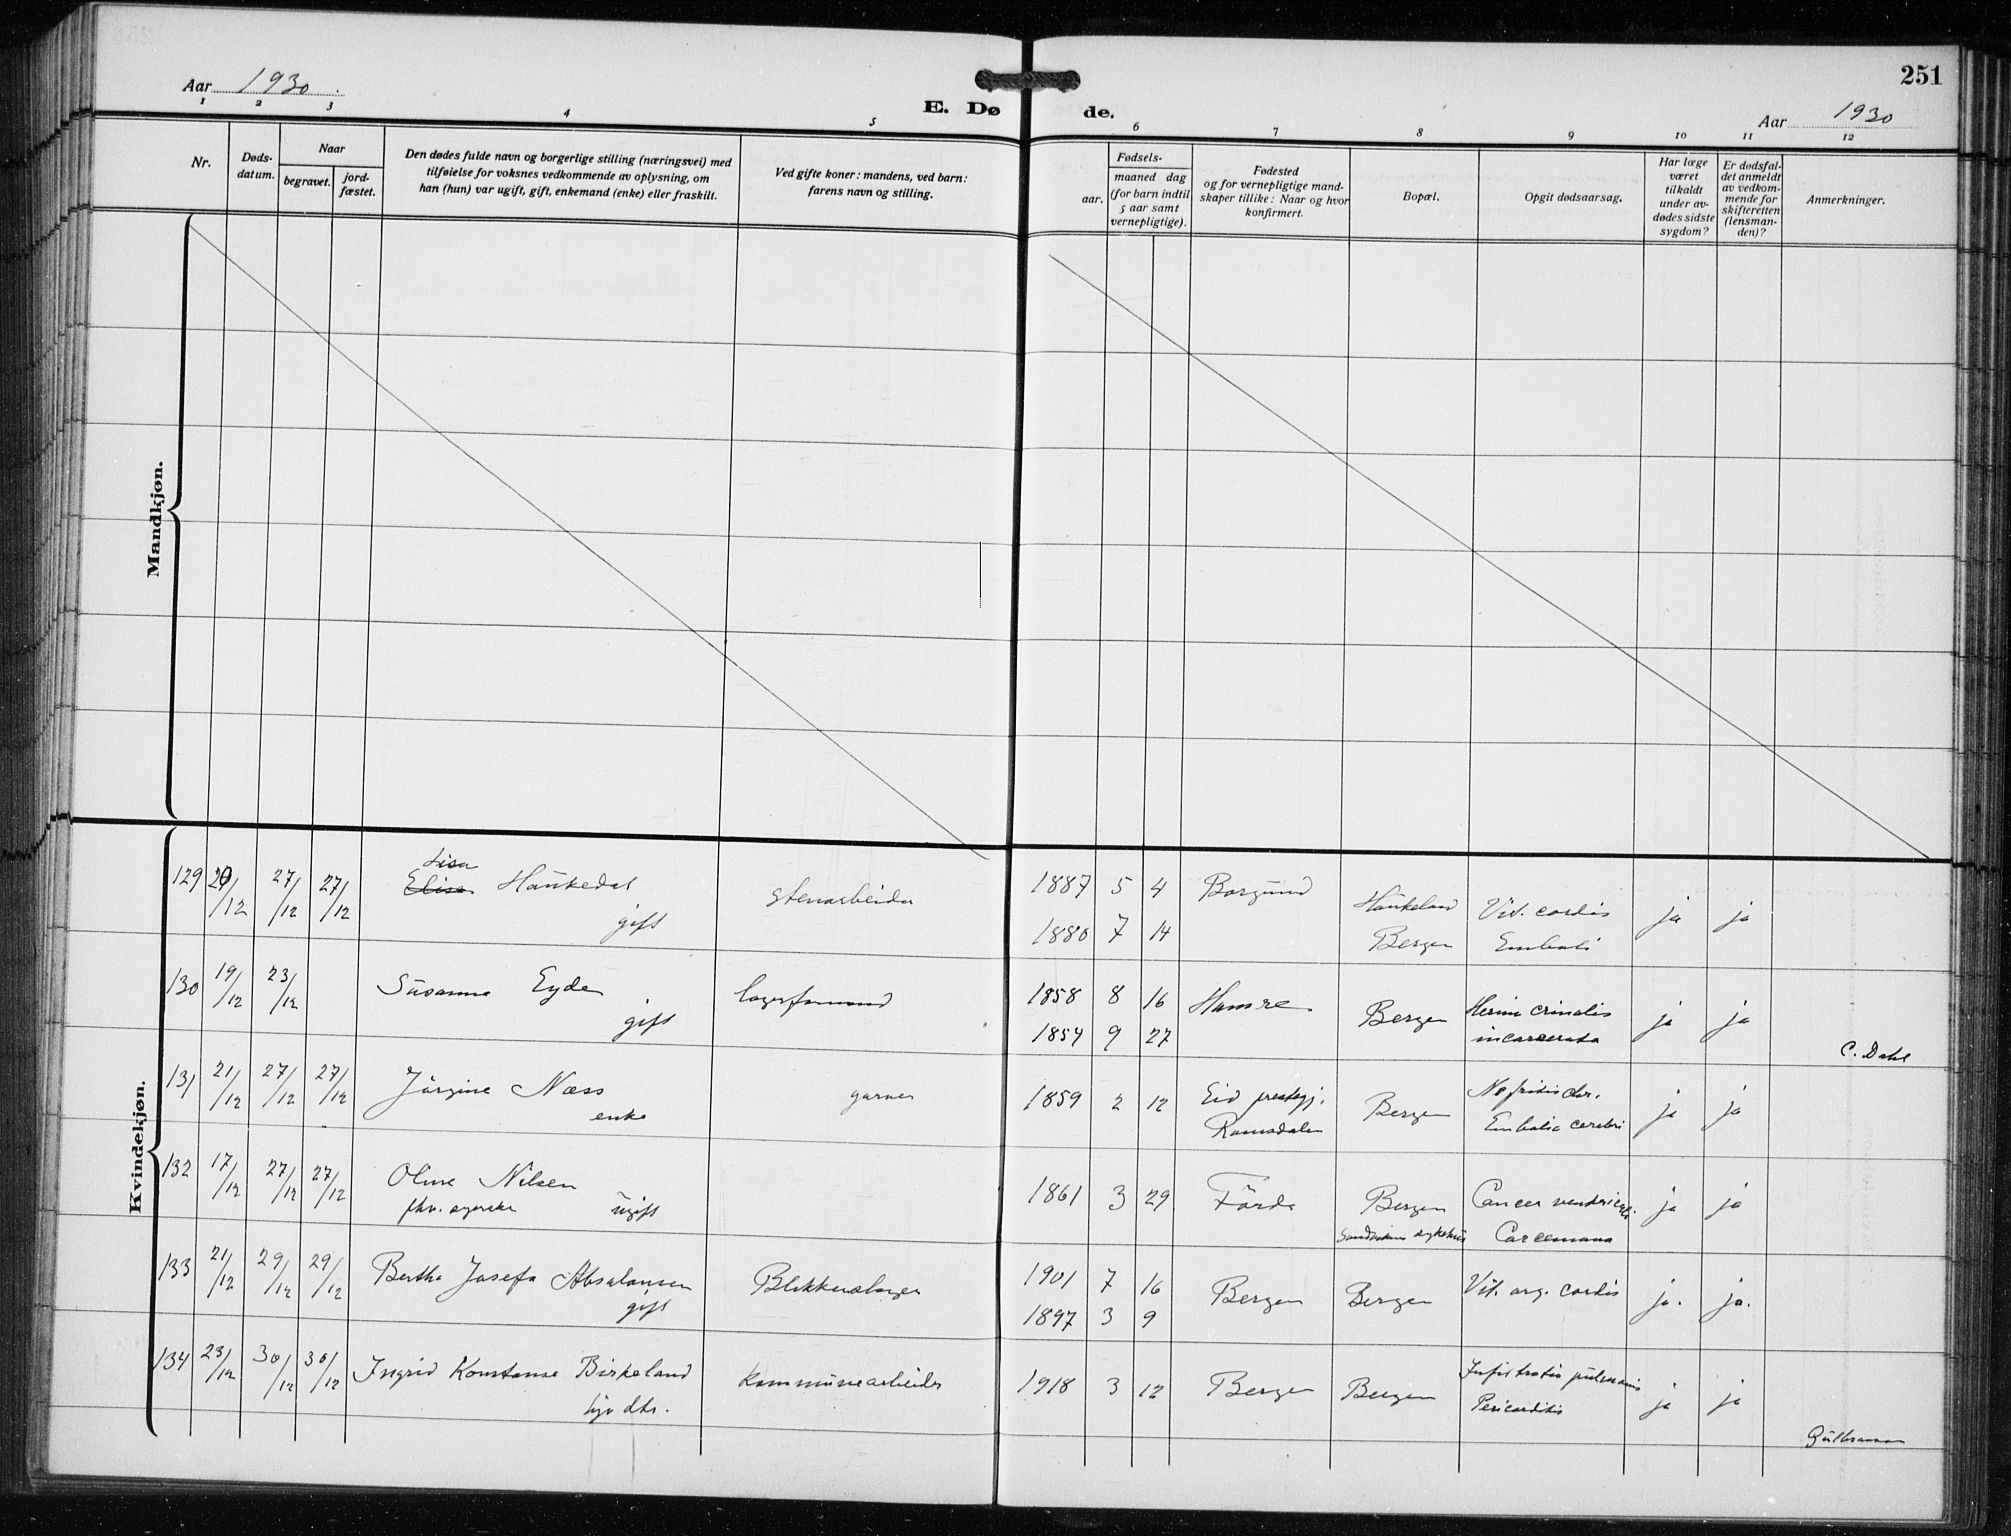 251
Aar 1930.
E. Dø
de.
Aar 1930
1 2 3 4 5 6 7 8 9 10 11 12
Nr.
Døds-
datum.
Naar
begravet.
jord-
fæstet.
Den dødes fulde navn og borgerlige stilling (næringsvei) med
tilføielse for voksnes vedkommende av oplysning, om
han (hun) var ugift, gift, enkemand (enke) eller fraskilt.
Ved gifte koner: mandens, ved barn:
farens navn og stilling.
Fødsels-
aar.
maaned dag
(for barn indtil
5 aar samt
vernepligtige).
Fødested
og for vernepligtige mand-
skaper tillike: Naar og hvor
konfirmert.
Bopæl.
Opgit dødsaarsag.
Har læge
været
tilkaldt
under av-
dødes sidste
sygdom?
Er dødsfal-
det anmeldt
av vedkom-
mende for
skifteretten
(lensman-
den)?
Anmerkninger.
Mandkjøn.
Kvindekjøn.
Lisa
129 20/12 27/12 27/12 Elisa Haukedal stenarbeider 1887 5 4 Borgund Haukeland Vit. cordis ja ja
gift 1880 7 14 Bergen Emboli
130 19/12 23/12 Susanna Eyde lagerformand 1858 8 16 Hamre Bergen crinalis ja ja
gift 1854 9 27 incarcerata
C. Dahl
131 21/12 27/12 27/12 Jörgine Næss garver 1859 2 12 Eid prestegj. Bergen Nefritis chr. ja ja
enke Romsdalen Embolia cerebri
132 17/12 27/12 27/12 Oline Nilsen 1861 3 29 Förde Bergen Cancer ventriculi. ja ja
fhv. ugift Sandvikens sykehus
133 21/12 29/12 29/12 Bertha Josefa Absalonsen Blikkenslager 1901 7 16 Bergen Bergen Vit. org. cordis ja. ja.
gift 1897 3 9
134 23/12 30/12 30/12 Ingrid Konstanse Birkeland kommunearbeider 1918 3 12 Bergen Bergen Infiltratio pulmonis ja ja
dtr. Pericarditis
Gulbranson